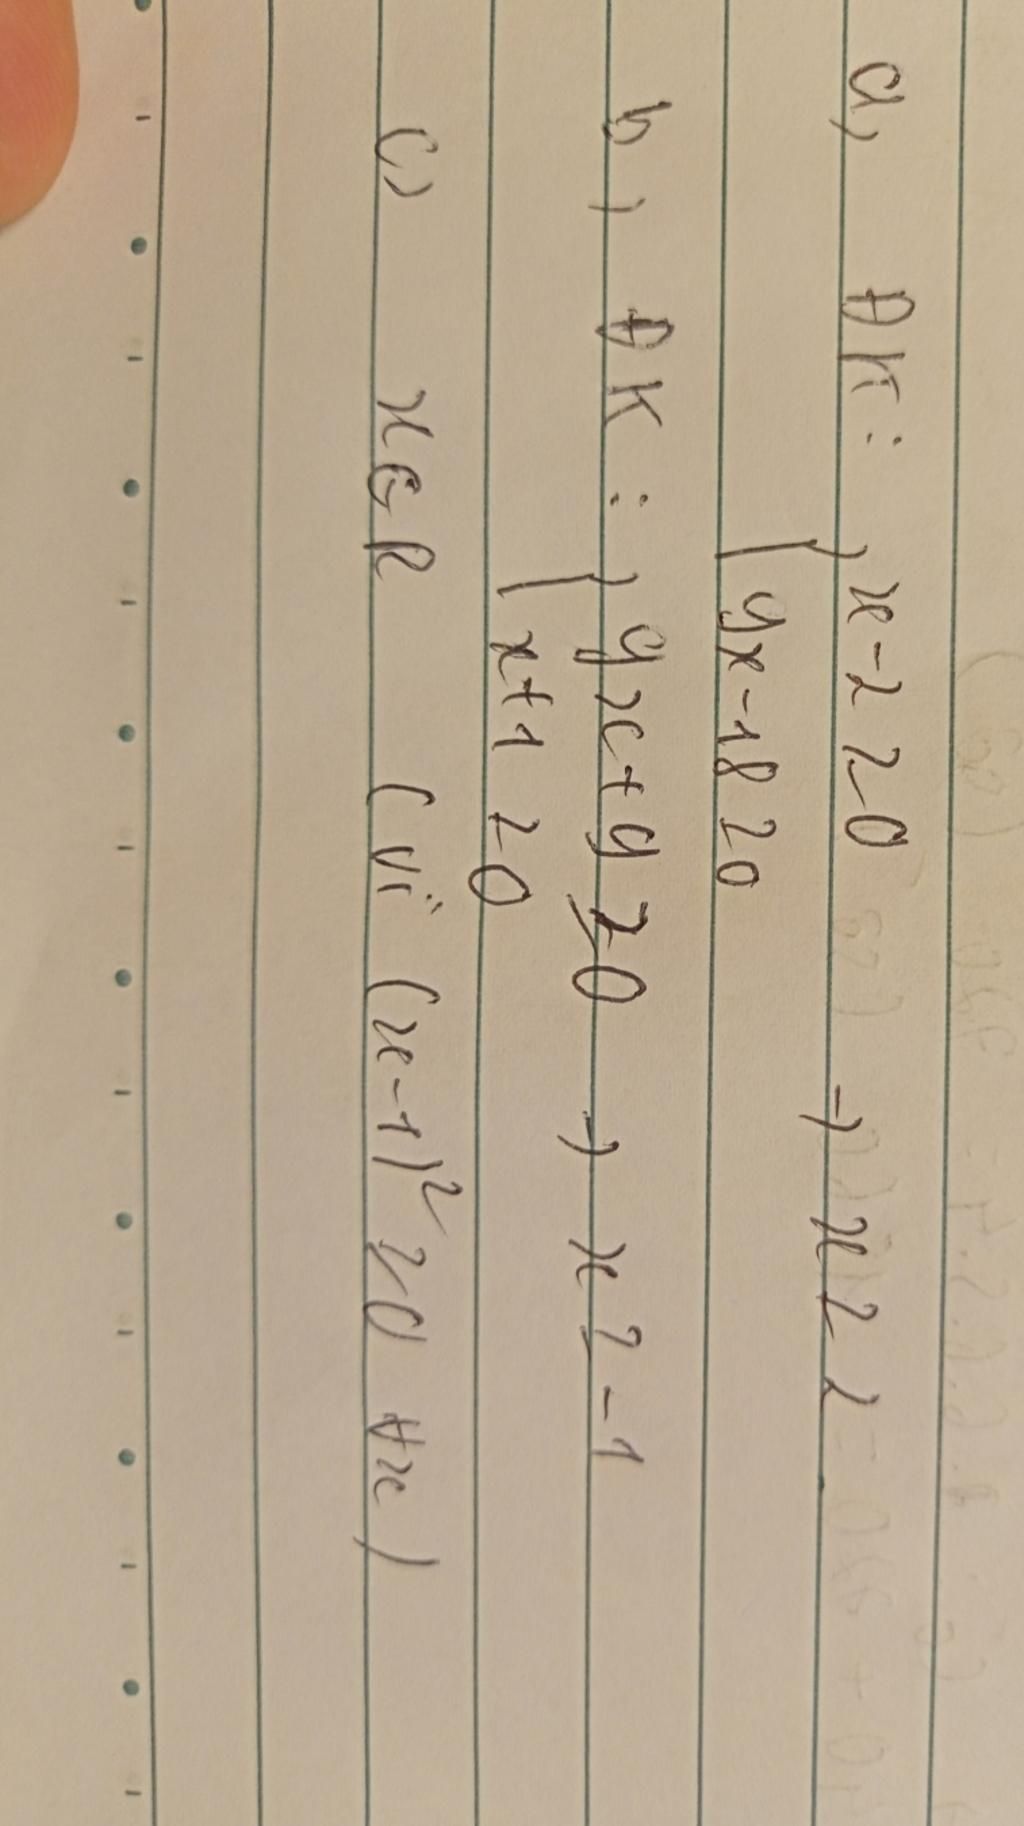 a, ĐK: { x-2 ≥ 0 → x ≥ 2.
9x-18 ≥ 0
b, ĐK: { 9x+9 ≥ 0 → x ≥ -1
x+1 ≥ 0
c) x ∈ R (vì (x-1)² ≥ 0 ∀x)